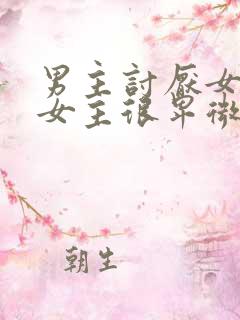 男主討厭女
女主很卑微
朝生